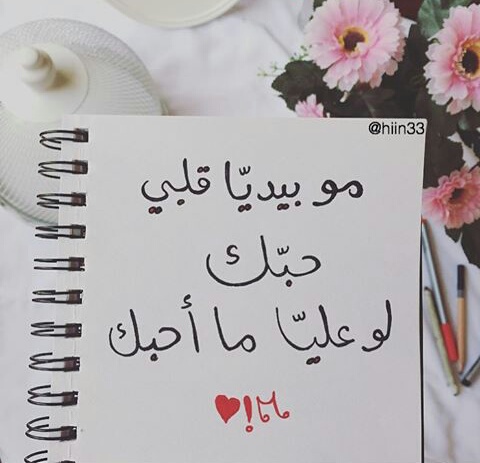 @hiin33
مو بيديّا قلبي
حبّك
لو عليّا ما أحبك